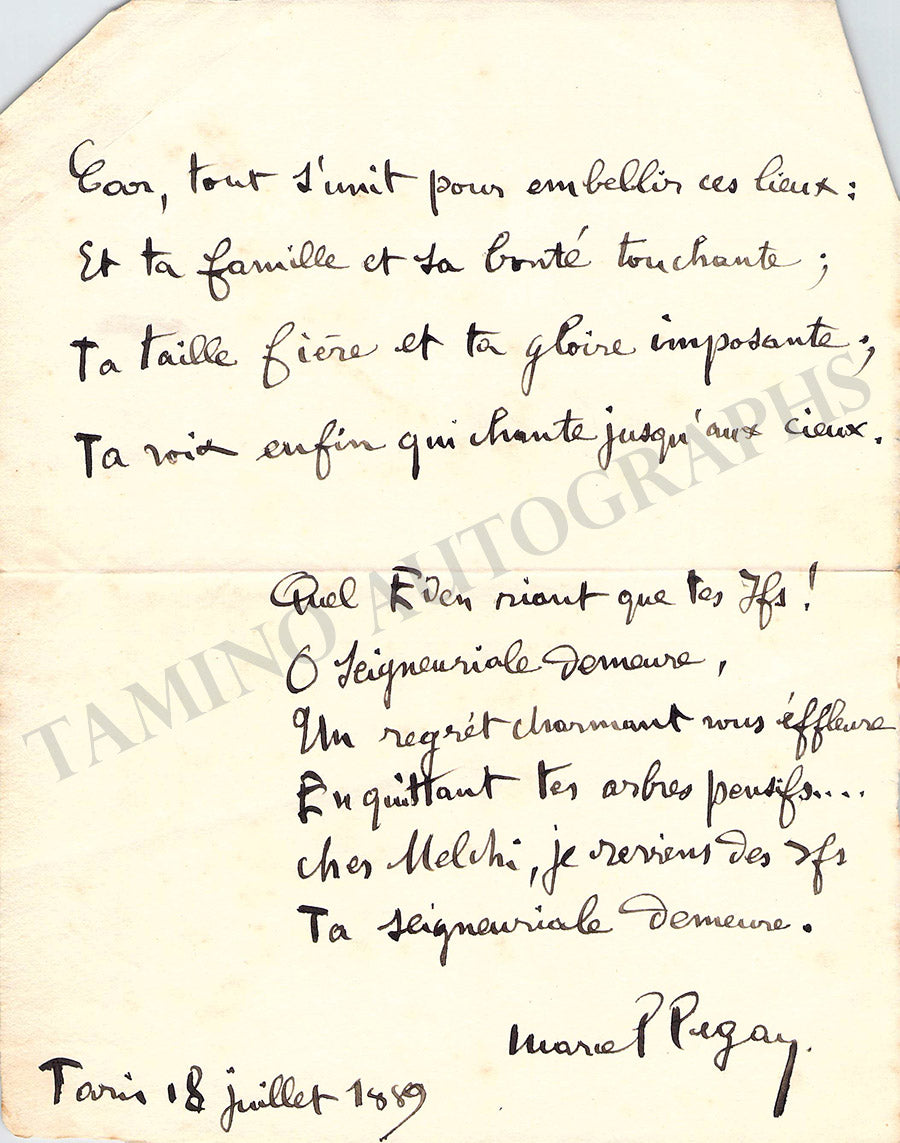 Car, tout s'unit pour embellir ces lieux :
Et ta famille et sa bonté touchante ;
Ta taille fière et ta gloire imposante ;
Ta voix enfin qui chante jusqu'aux cieux.
Quel Eden riant que tes Ifs !
O seigneuriale demeure,
Un regrét charmant nous éffleure
En quittant tes arbres pensifs....
cher Melchi, je reviens des Ifs
Ta seigneuriale demeure.
Marcel
Paris 18 juillet 1889
TAMINO AUTOGRAPHS